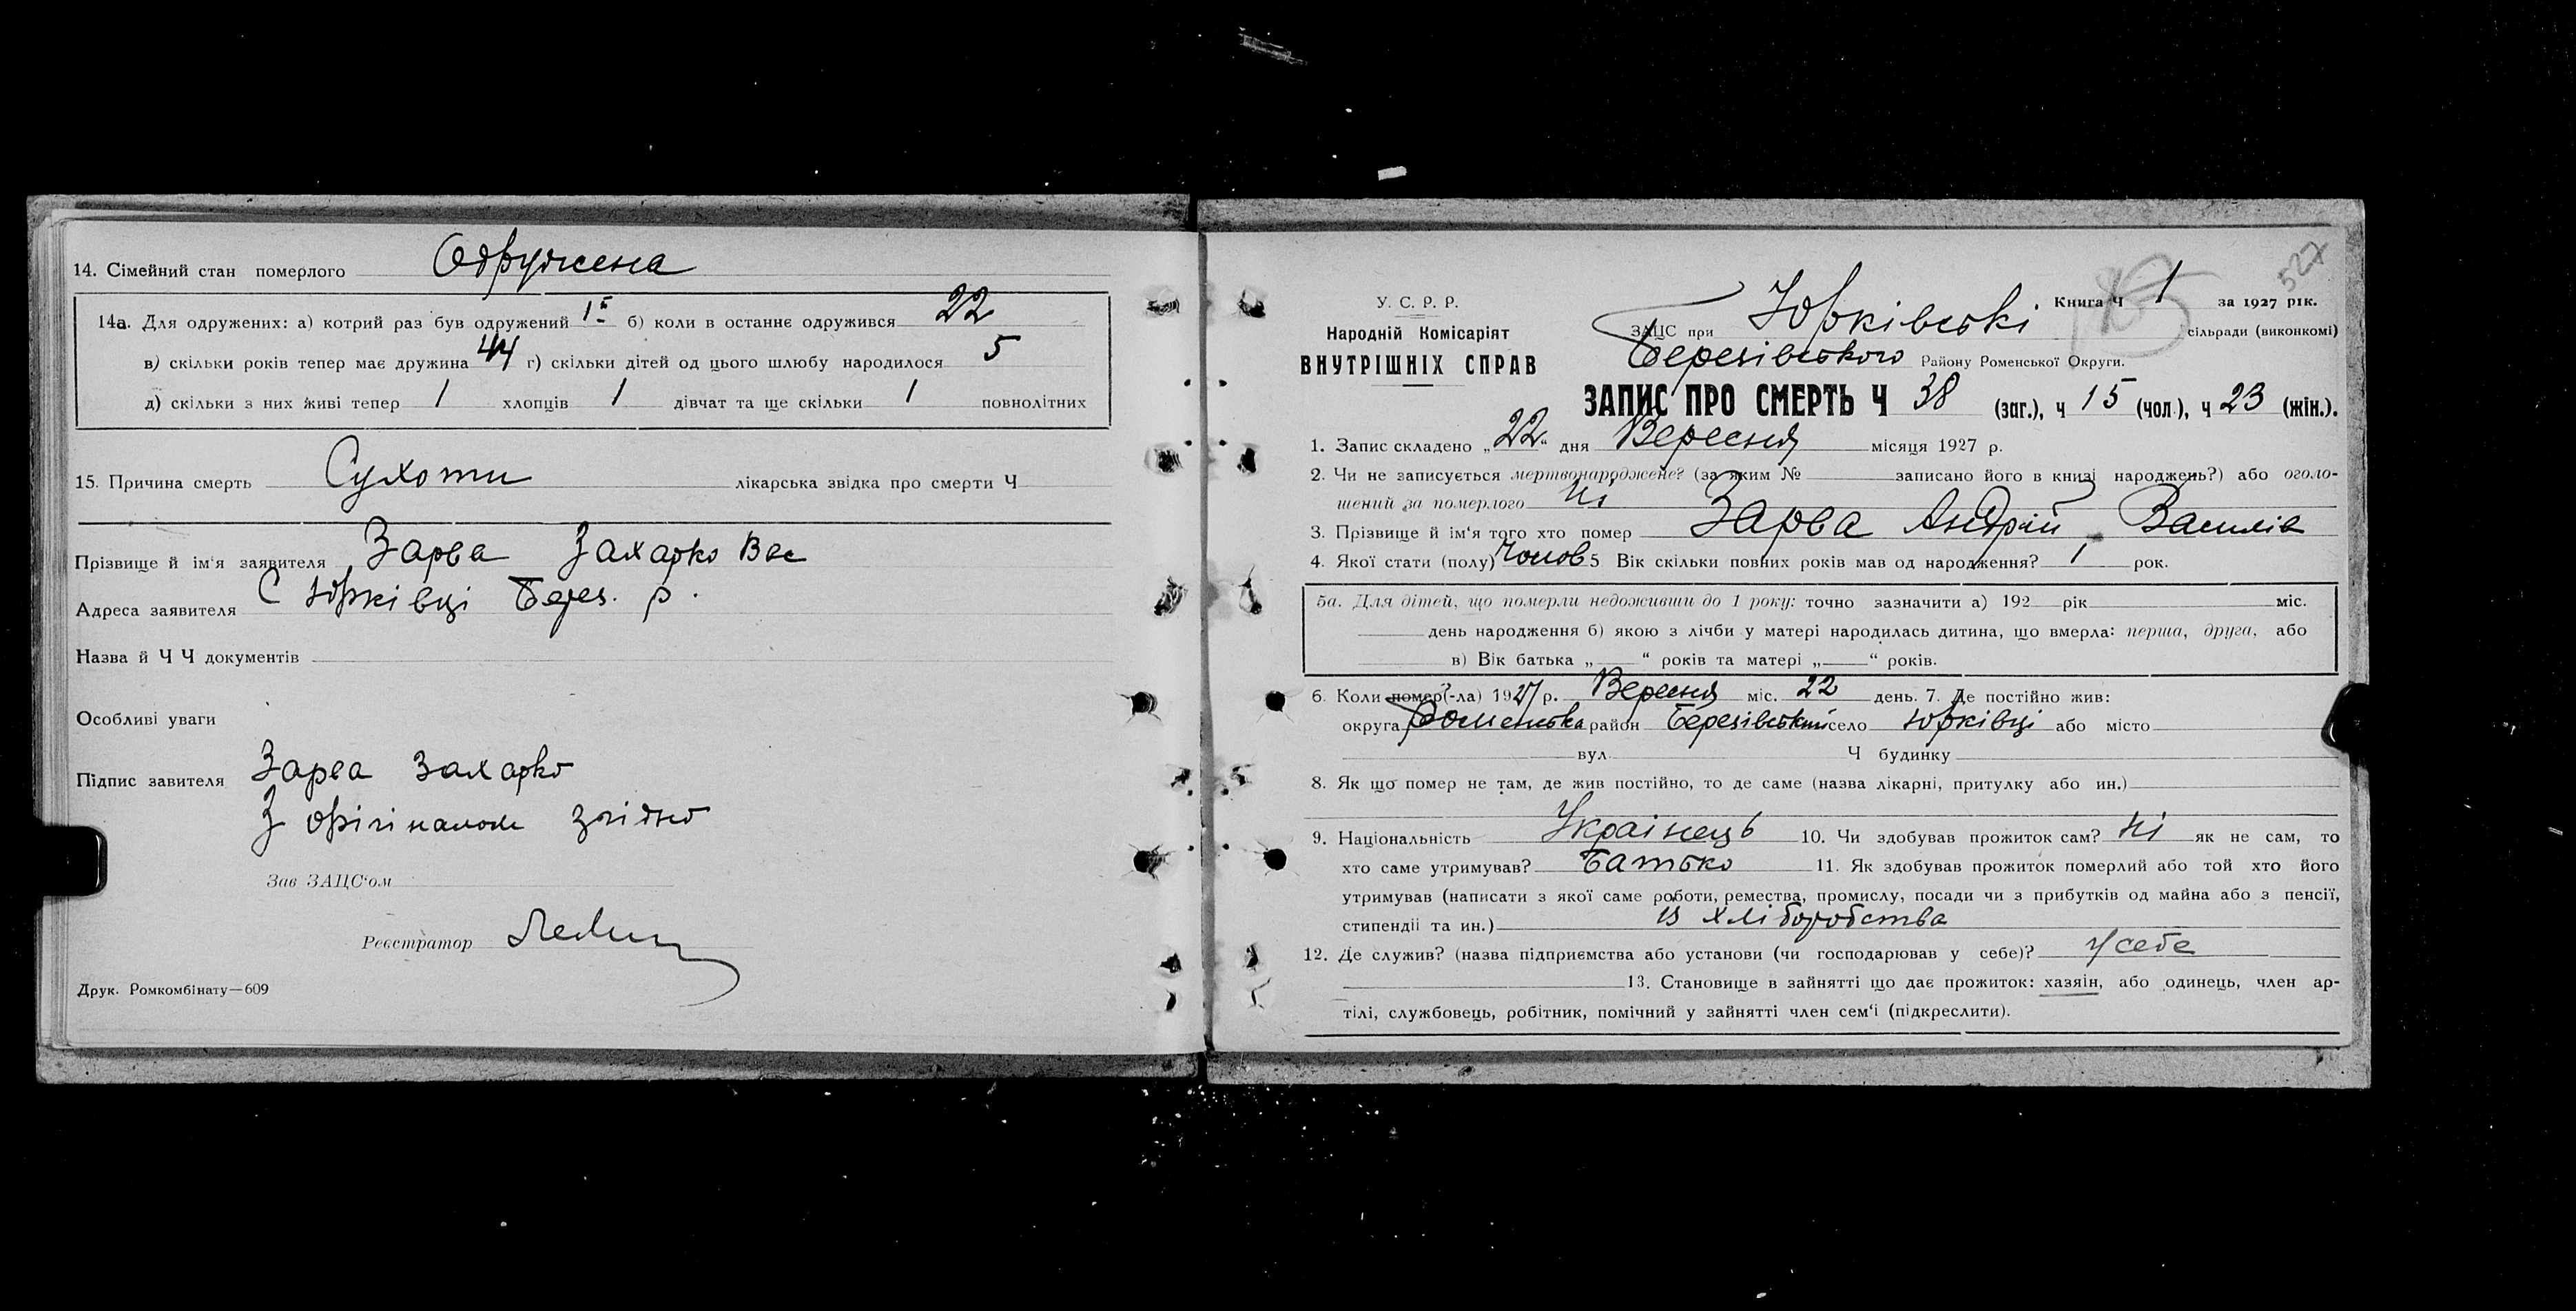 14. Сімейний стан померлого Одружена
14а. Для одружених: а) котрий раз був одружений 1й б) коли в останнє одружився 22
в) скільки років тепер має дружина 44 г) скільки дітей од цього шлюбу народилося 5
д) скільки з них живі тепер 1 хлопців 1 дівчат та ще скільки 1 повнолітних
15. Причина смерть Сухоти лікарська звідка про смерти Ч
Прізвище й ім'я заявителя Зарва Захарко Вас
Адреса заявителя С Юрківці Берез. р.
Назва й Ч Ч документів
Особливі уваги
Підпис завителя Зарва Захарко
З орігіналом згідно
Зав ЗАЦС'ом
Реєстратор
Друк. Ромкомбінату—609
527
У. С. Р. Р.
Народній Комісаріят
ВНУТРІШНІХ СПРАВ
Книга Ч 1 за 1927 рік.
ЗАЦС при Юрківські сільради (виконкомі)
Березівського Району Роменської Округи.
ЗАПИС ПРО СМЕРТЬ Ч 38 (заг.), ч 15 (чол.), ч 23 (жін.).
1. Запис складено „22" дня Вересня місяця 1927 р.
2. Чи не записується мертвонароджене? (за яким № записано його в книзі народжень?) або оголо-
шений за померлого Ні
3. Прізвище й ім'я того хто помер Зарва Андрій Василів
4. Якої стати (полу) Чолов 5 Вік скільки повних років мав од народження? 1 рок.
5а. Для дітей, що померли недоживши до 1 року: точно зазначити а) 192 рік міс.
день народження б) якою з лічби у матері народилась дитина, що вмерла: перша, друга, або
в) Вік батька „ “ років та матері „ “ років.
6. Коли помер(-ла) 1927 р. Вересня міс. 22 день. 7. Де постійно жив:
округа Роменська район Березівський село Юрківці або місто
вул. Ч будинку
8. Як що помер не там, де жив постійно, то де саме (назва лікарні, притулку або ин.)
9. Національність Українець 10. Чи здобував прожиток сам? Ні як не сам, то
хто саме утримував? Батько 11. Як здобував прожиток померлий або той хто його
утримував (написати з якої саме роботи, ремества, промислу, посади чи з прибутків од майна або з пенсії,
стипендії та ин.) із хліборобства
12. Де служив? (назва підприємства або установи (чи господарював у себе)? У себе
13. Становище в зайнятті що дає прожиток: хазяїн, або одинець, член ар-
тілі, службовець, робітник, помічний у зайнятті член сем'ї (підкреслити).